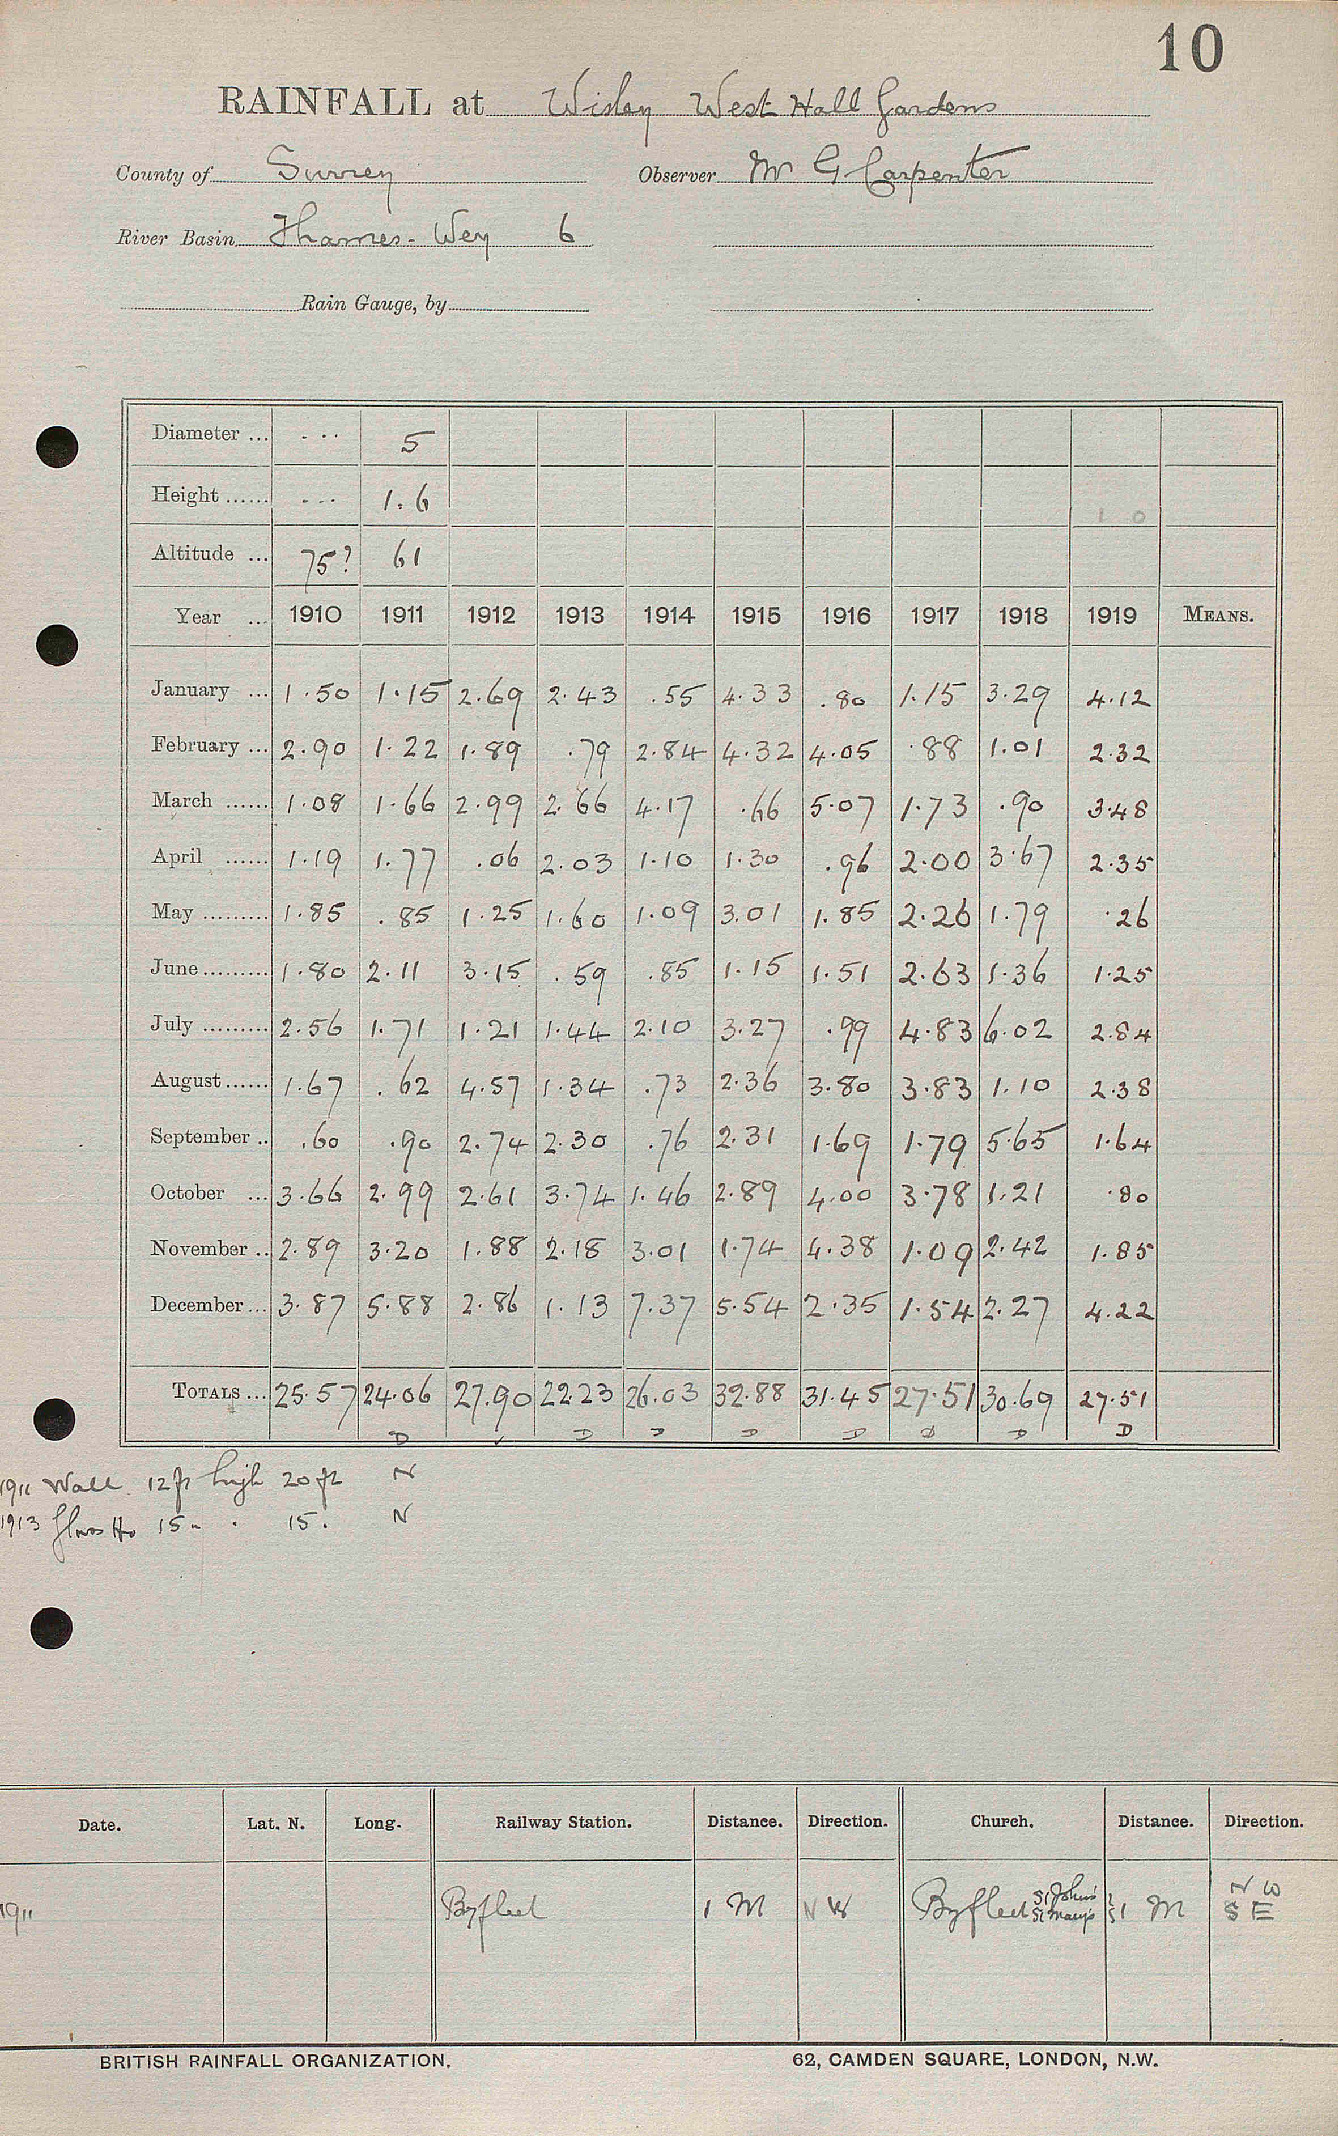 10
RAINFALL at Wisley West Hall Gardens
County of Surrey Observer Mr G Carpenter
River Basin Thames - Wey 6
Rain Gauge, by
Diameter ... ... 5
Height ...... ... 1.6
Altitude ... 75? 61
Year ... 1910 1911 1912 1913 1914 1915 1916 1917 1918 1919 MEANS.
January ... 1.50 1.15 2.69 2.43 .55 4.33 .80 1.15 3.29 4.12
February ... 2.90 1.22 1.89 .79 2.84 4.32 4.05 .88 1.01 2.32
March ...... 1.08 1.66 2.99 2.66 4.17 .66 5.07 1.73 .90 3.48
April ...... 1.19 1.77 .06 2.03 1.10 1.30 .96 2.00 3.67 2.35
May ......... 1.85 .85 1.25 1.60 1.09 3.01 1.85 2.26 1.79 .26
June ......... 1.80 2.11 3.15 .59 .85 1.15 1.51 2.63 1.36 1.25
July ......... 2.56 1.71 1.21 1.44 2.10 3.27 .99 4.83 6.02 2.84
August ...... 1.67 .62 4.57 1.34 .73 2.36 3.80 3.83 1.10 2.38
September .. .60 .90 2.74 2.30 .76 2.31 1.69 1.79 5.65 1.64
October ... 3.66 2.99 2.61 3.74 1.46 2.89 4.00 3.78 1.21 .80
November .. 2.89 3.20 1.88 2.18 3.01 1.74 4.38 1.09 2.42 1.85
December ... 3.87 5.88 2.86 1.13 7.37 5.54 2.35 1.54 2.27 4.22
TOTALS ... 25.57 24.06 27.90 22.23 26.03 32.88 31.45 27.51 30.69 27.51
D ✓ D D D D D D D
1911 Wall 12ft high 20 ft N
1913 Glass Ho 15 " " 15 . N
Date. Lat. N. Long. Railway Station. Distance. Direction. Church. Distance. Direction.
1911 Byfleet 1 M NW Byfleet St John's St Mary's 1 M NW SE
BRITISH RAINFALL ORGANIZATION. 62, CAMDEN SQUARE, LONDON, N.W.